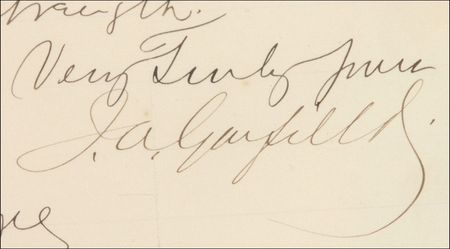 strength.
Very Truly yours
J. A. Garfield.